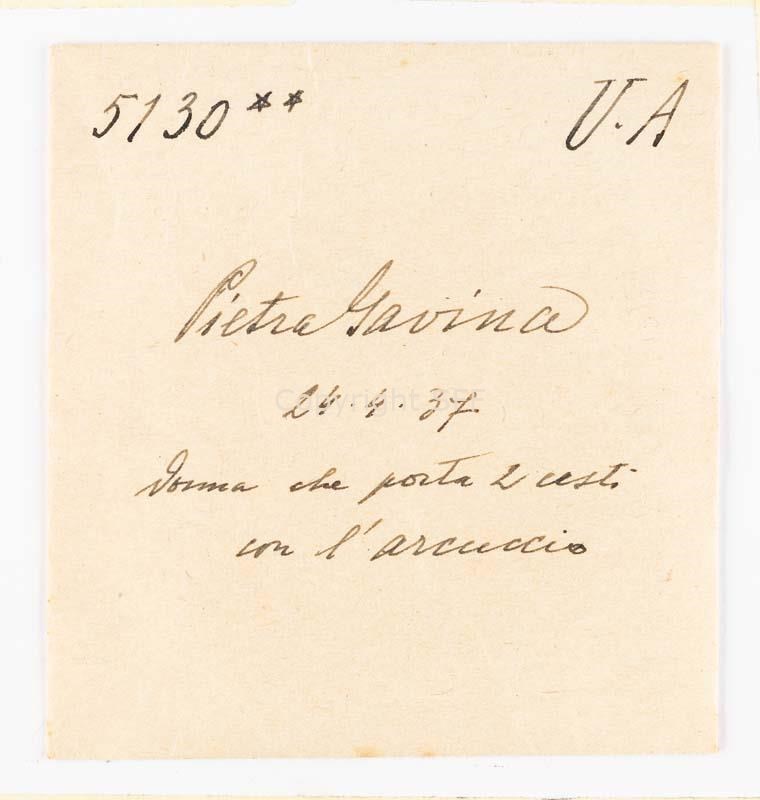 5130** V.A
Pietra Gavina
24.4.37
donna che porta 2 cesti
con l'arcuccio